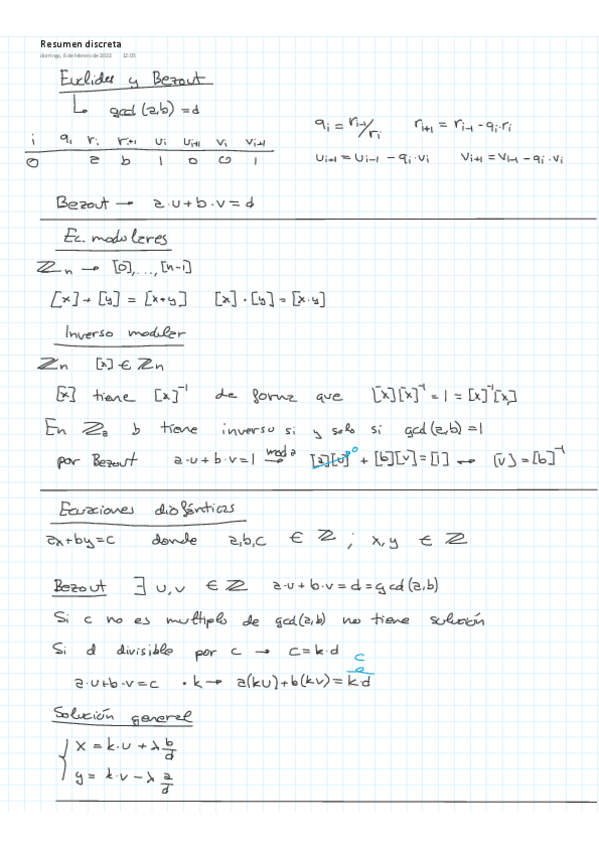 Resumen discreta
domingo, 6 de febrero de 2022 12:05
Euclides y Bezout
↳ gcd (a,b) = d
qᵢ = rᵢ₋₁/rᵢ rᵢ₊₁ = rᵢ₋₁ - qᵢ·rᵢ
i qᵢ rᵢ rᵢ₊₁ uᵢ uᵢ₊₁ vᵢ vᵢ₊₁
uᵢ₊₁ = uᵢ₋₁ - qᵢ·vᵢ vᵢ₊₁ = vᵢ₋₁ - qᵢ·vᵢ
0 a b 1 0 0 1
Bezout → a·u + b·v = d
Ec. modulares
ℤₙ → [0], ..., [n-1]
[x] + [y] = [x+y] [x]·[y] = [x·y]
Inverso modular
ℤₙ [x] ∈ ℤₙ
[x] tiene [x]⁻¹ de forma que [x][x]⁻¹ = 1 = [x]⁻¹[x]
En ℤₐ b tiene inverso si y solo si gcd(a,b) = 1
por Bezout a·u + b·v = 1 mod a → [a][u]⁰ + [b][v] = [1] → [v] = [b]⁻¹
Ecuaciones diofánticas
ax+by=c donde a,b,c ∈ ℤ ; x,y ∈ ℤ
Bezout ∃ u,v ∈ ℤ a·u + b·v = d = gcd(a,b)
Si c no es multiplo de gcd(a,b) no tiene solución
Si d divisible por c → c = k·d
c
a·u+b·v = c ·k → a(ku)+b(kv) = kd
Solución general
x = k·u + λ b/d
y = k·v - λ a/d